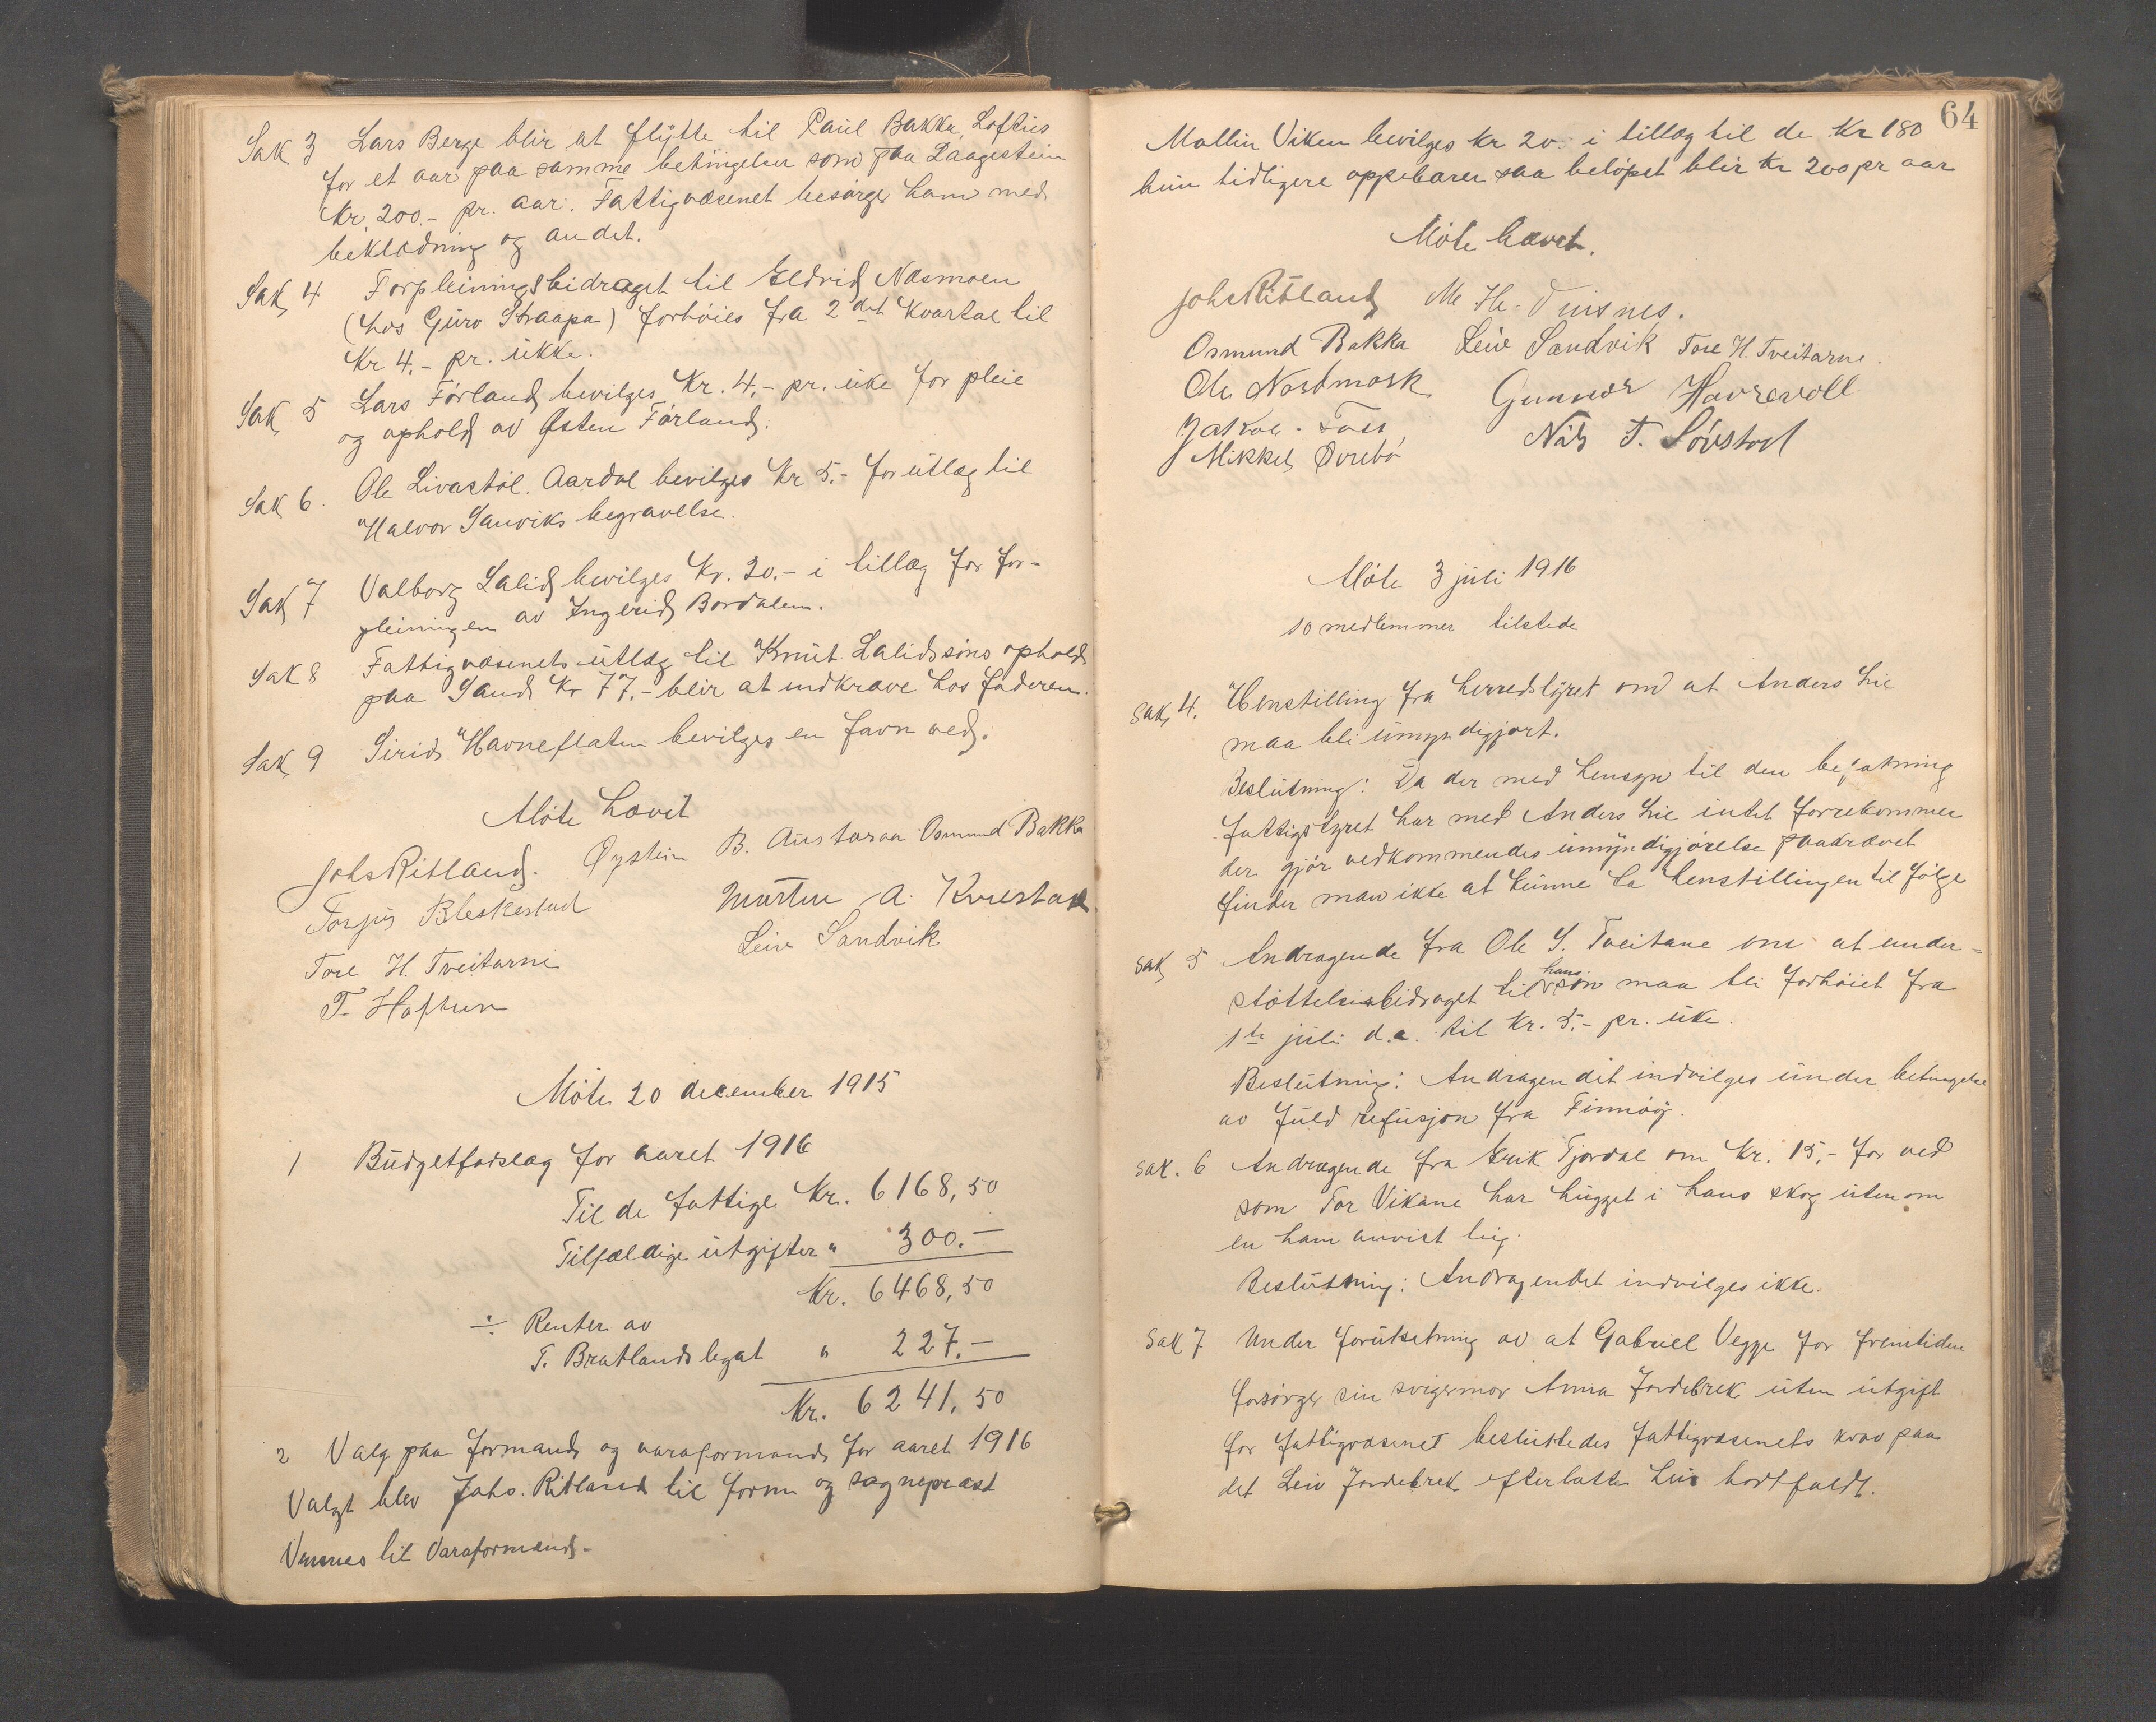 Sak 3 Lars Berge blir at flytte til Paul Bakka, Loftus
for et aar paa samme betingelser som paa Laagestein
Kr. 200.- pr. aar. Fattigvæsenet besørger ham med
beklædning og andet.
Sak 4 Forpleiningsbidraget til Eldrid Næsmoen
(hos Guro Straapa) forhøies fra 2det kvartal til
Kr 4.- pr. uke.
Sak 5 Lars Førland bevilges Kr. 4,- pr. uke for pleie
og ophold av Østen Førland.
Sak 6. Ole Livastøl. Aardal bevilges Kr 5.- for utlæg til
Halvor Sanviks begravelse.
Sak 7 Valborg Lalid bevilges Kr. 20.- i tillæg for for-
pleiningen av Ingerid Bordalen.
Sak 8 Fattigvæsenets utlæg til Knut Lalids søns ophold
paa Sand Kr 77.- blir at indkræve hos faderen.
Sak 9 Sirid Havneflaten bevilges en favn ved.
Møte hævet
Johs Ritland. Øystein B. Austaraa Osmund Bakka
Torjus Bleskestad Morten A. Kvæstad
Leiv Sandvik
Tore H. Tveitarne
T. Hoftun
Møte 20 december 1915
1 Budgetforslag for aaret 1916
Til de fattige Kr. 6168,50
Tilfældige utgifter " 300.-
Kr. 6468,50
÷ Renter av
T. Bratlands legat " 227.-
Kr. 6241,50
2 Valg paa formand og varaformand for aaret 1916
Valgt blev Johs. Ritland til form og sognepræst
Vinsnes til Varaformand.
64
Mallin Viken bevilges kr 20. i tillæg til de Kr 180
hun tidligere oppebærer saa beløpet blir kr 200 pr aar
Møte hævet.
Johs Ritland M. H. Vinsnes.
Osmund Bakka Leiv Sandvik Tore H. Tveitarne.
Ole Nordmark Gunnar Havrevoll
Jakob Foss, Nils T. Løvstad
Mikkel Øvrebø
Møte 3 juli 1916
10 medlemmer tilstede
Sak 4. Henstilling fra herredstyret om at Anders Lie
maa bli umyndiggjort.
Beslutning: Da der med hensyn til den befatning
fattigstyret har med Anders Lie intet forrekommer
der gjør vedkommendes umyndiggjørelse paakrævet
finder man ikke at kunne ta henstillingen til følge
Sak 5 Andragende fra Ole S. Tveitane om at under-
støttelsesbidraget til hans søn maa bli forhøiet fra
1ste juli d.a. til Kr. 5.- pr. uke.
Beslutning: Andragendet indvilges under betingelse
av fuld refusjon fra Finnøy.
Sak. 6 Andragende fra Erik Fjordal om Kr. 15,- for ved
som Tor Vikane har hugget i hans skog utenom
en ham anvist teig.
Beslutning: Andragendet indvilges ikke.
Sak 7 Under forutsetning av at Gabriel Vegge for fremtiden
forsørger sin svigermor Anna Jordebrek uten utgift
for fattigvæsenet besluttedes fattigvæsenets krav paa
det Leiv Jordebrek efterlatte hus bortfaldt.